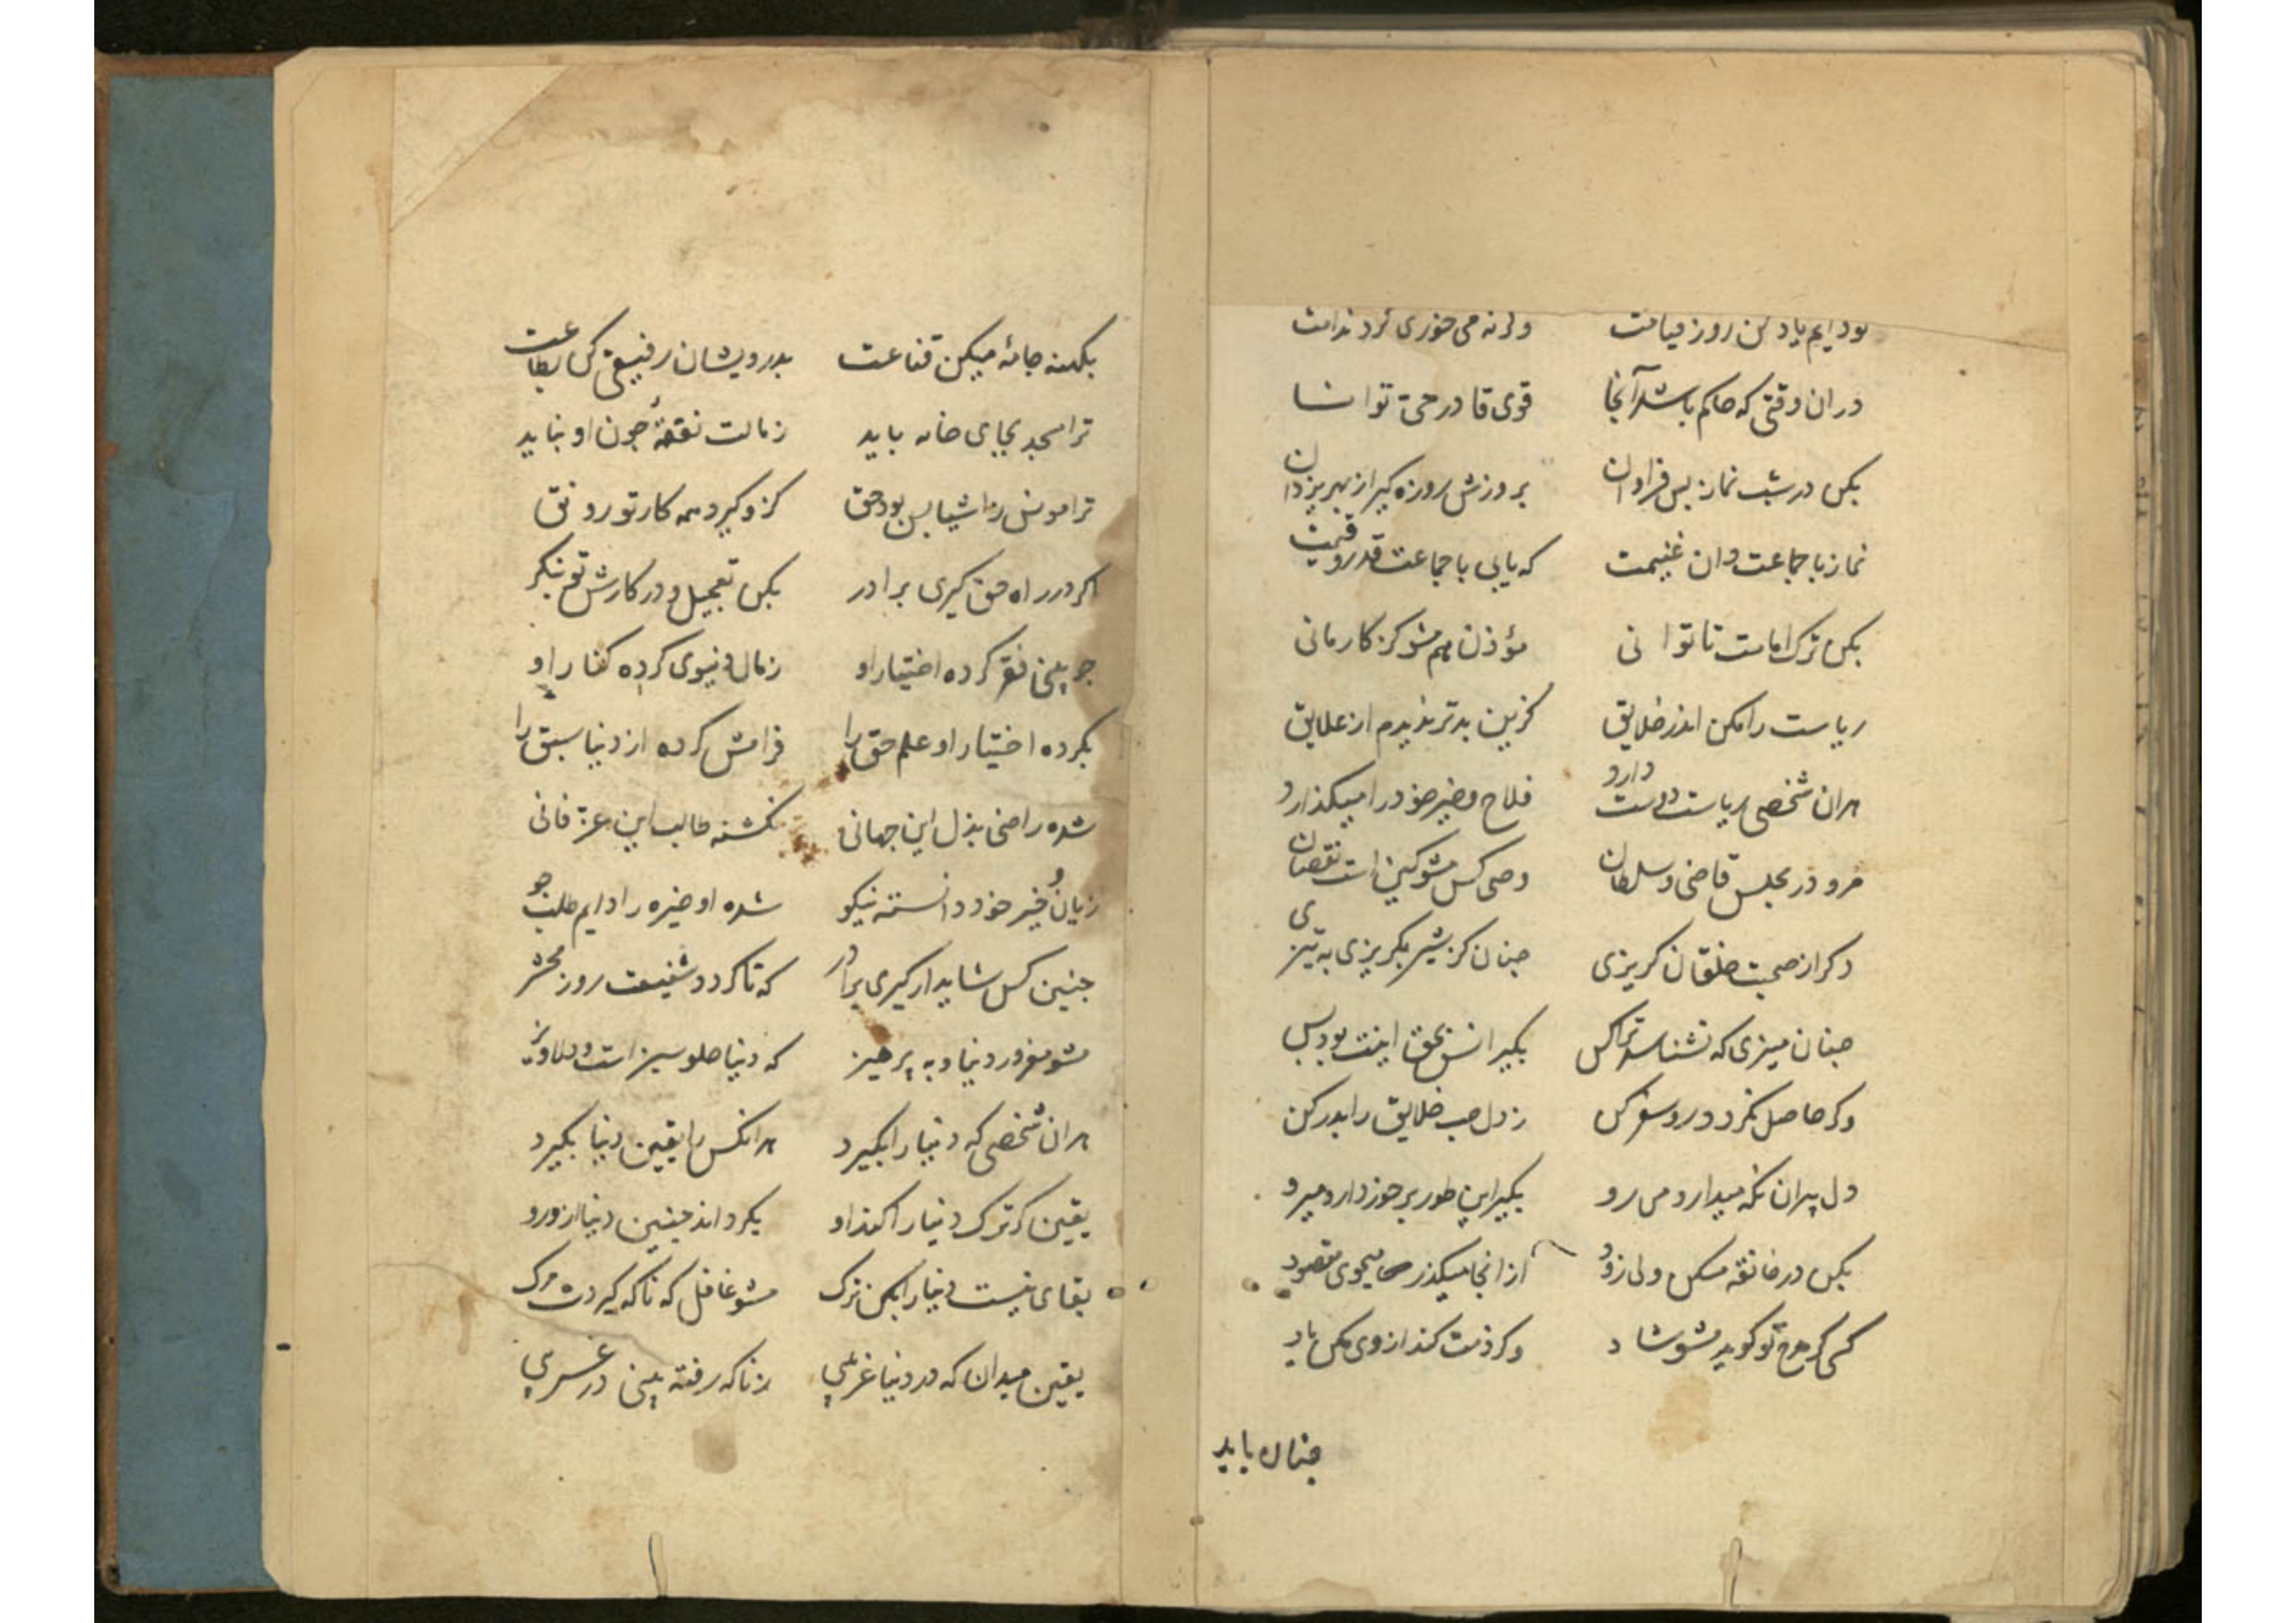 بود ایم یاد کن روز قیامت ورنه می خوری گرد ندامت
دران وقتی که حاکم باشد آنجا قوی قادر حی توانا
بکن در شب نماز بس فراوان بروزش روزه گیر از بهر یزدان
نماز با جماعت دان غنیمت که یابی با جماعت قدر و قیمت
بکن ترک امامت تا توانی مؤذن هم مشو کز کار مانی
ریاست را مکن اندر خلایق کزین بدتر ندیدم از علایق
هران شخصی ریاست دوست دارد فلاح و خیر خود را میکذارد
مرو در مجلس قاضی و سلطان وصی کس مشو کین است نقصان
دکر از صحبت خلقان کریزی جنان کز شیر بکریزی به تیزی
جنان میزی که نشناسد ترا کس بکیر انس بحق اینت بود بس
وکر حاصل نکردد رو سفر کن ز دل حب خلایق را بدر کن
دل پیران نکه میدار و می رو بکیر این طور بر خود دار و میرو
بکن در خانقه مسکن ولی زود از آنجا میکذر میجوی مقصود
کسی کر مدح تو کوید مشو شاد وکر ذمت کند از وی مکن یاد
جنان باید
بکهنه جامۀ میکن قناعت بدرویشان رفیقی کن بطاعت
ترا مسجد بجای خانه باید ز مالت نفقۀ جون او نباید
ترا مونس ز اشیا بس بود حق کزو کیرد همه کار تو رونق
اکر در راه حق کیری برادر بکن تعجیل و در کارش تو بنکر
جو بینی فقر کرده اختیار او ز مال دنیوی کرده کنار او
بکرده اختیار او علم حق را فرامش کرده از دنیا سبق را
شده راضی بذل این جهانی نکشته طالب این عز فانی
زیان و خیر خود دانسته نیکو شده او خیره را دایم طلب جو
جنین کس شاید ار کیری برادر که تا کردد شفیعت روز محشر
مشو مغرور دنیا و به پرهیز که دنیا حلو سبز است و دلاویز
هران شخصی که دنیا را بکیرد هرانکس را یقین دنیا بکیرد
یقین کر ترک دنیا را کند او بکرداند جنین دنیا ازو رو
بقای نیست دنیا را بکن ترک مشو غافل که ناکه کیردت مرک
یقین میدان که در دنیا غریبی ز ناکه رفته بینی در غریبی